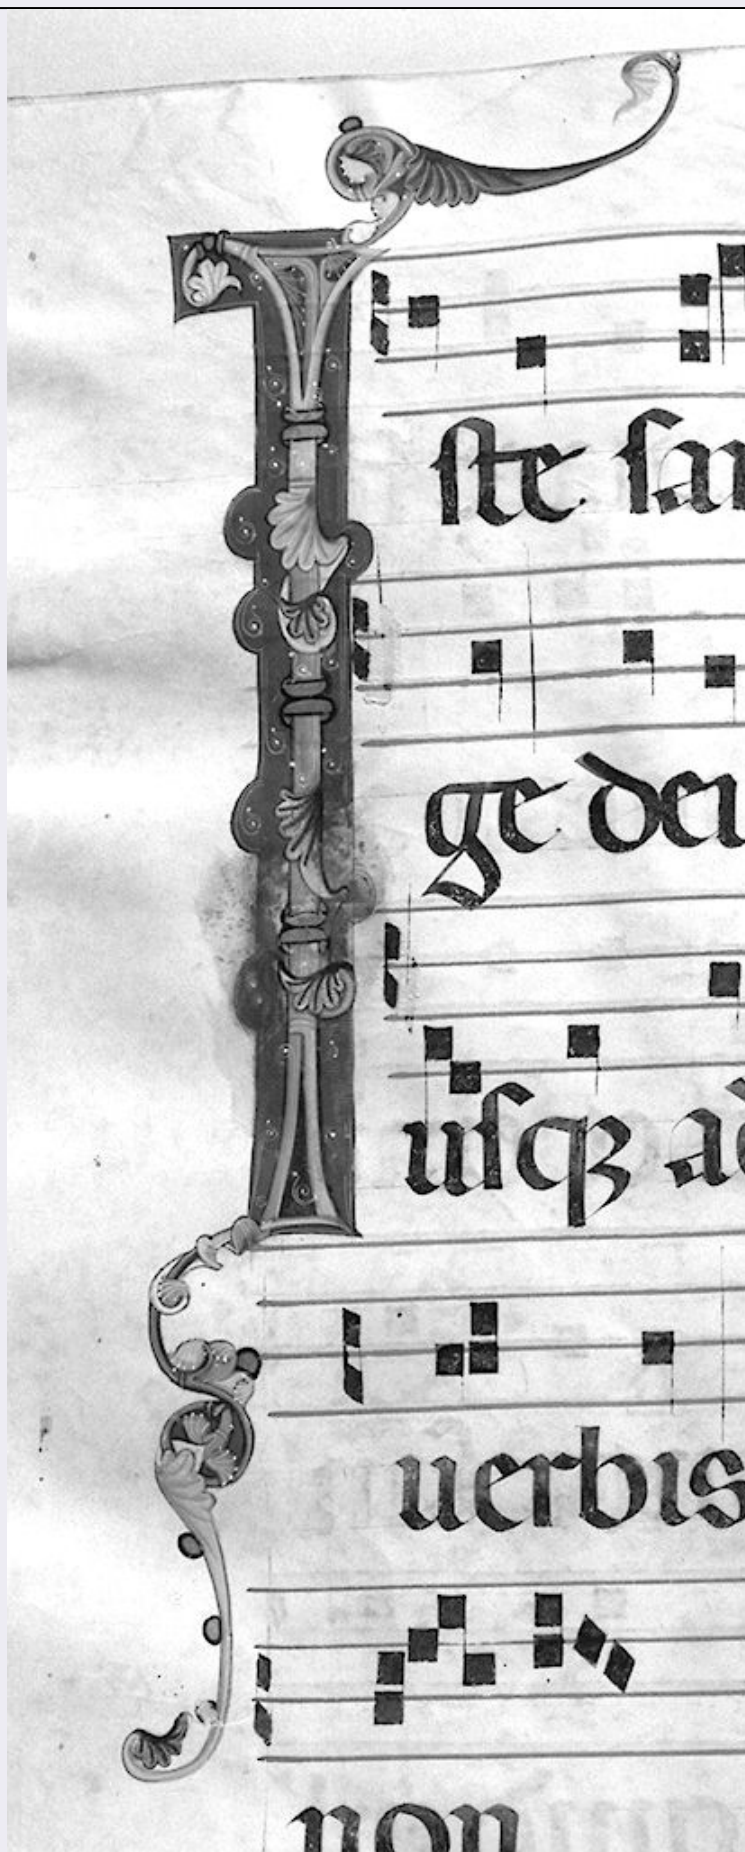 Iste san
ge dei
usqꝫ ad
uerbis
non